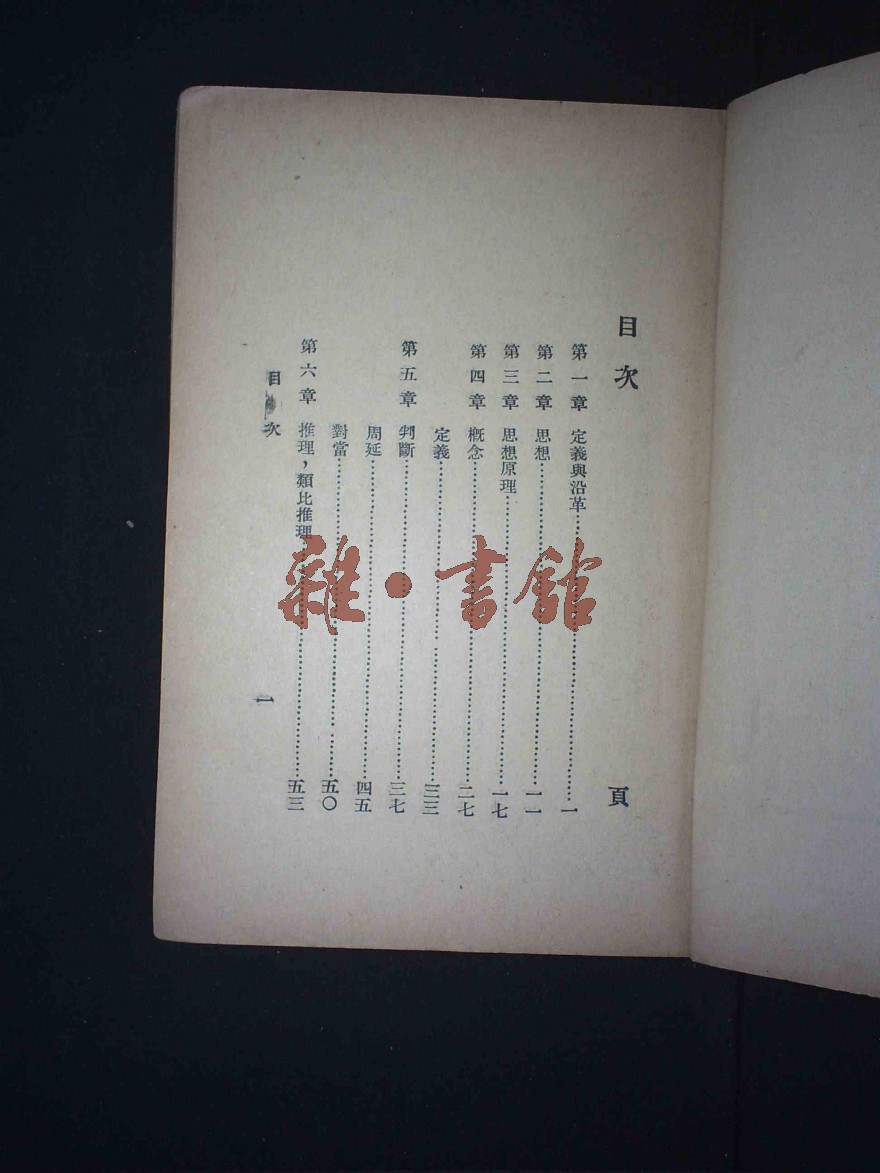 目次 頁
第一章 定義與沿革……一
第二章 思想……一一
第三章 思想原理……一七
第四章 概念……二七
定義……三三
第五章 判斷……三七
周延……四五
對當……五〇
第六章 推理，類比推理……五三
目次 一
雜·書館